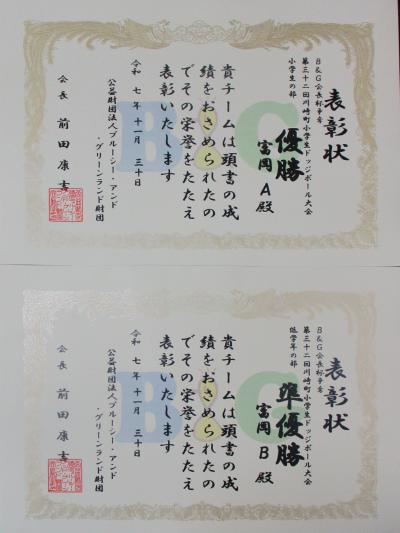 表彰状
B&G会長杯争奪
第三十二回川崎町小学生ドッジボール大会
小学生の部
優勝
富岡A殿
貴チームは頭書の成
績をおさめられたの
でその栄誉をたたえ
表彰いたします
令和七年十一月三十日
公益財団法人ブルーシー・アンド
・グリーンランド財団
会長 前田康吉
B&G
表彰状
B&G会長杯争奪
第三十二回川崎町小学生ドッジボール大会
低学年の部
準優勝
富岡B殿
貴チームは頭書の成
績をおさめられたの
でその栄誉をたたえ
表彰いたします
令和七年十一月三十日
公益財団法人ブルーシー・アンド
・グリーンランド財団
会長 前田康吉
B&G